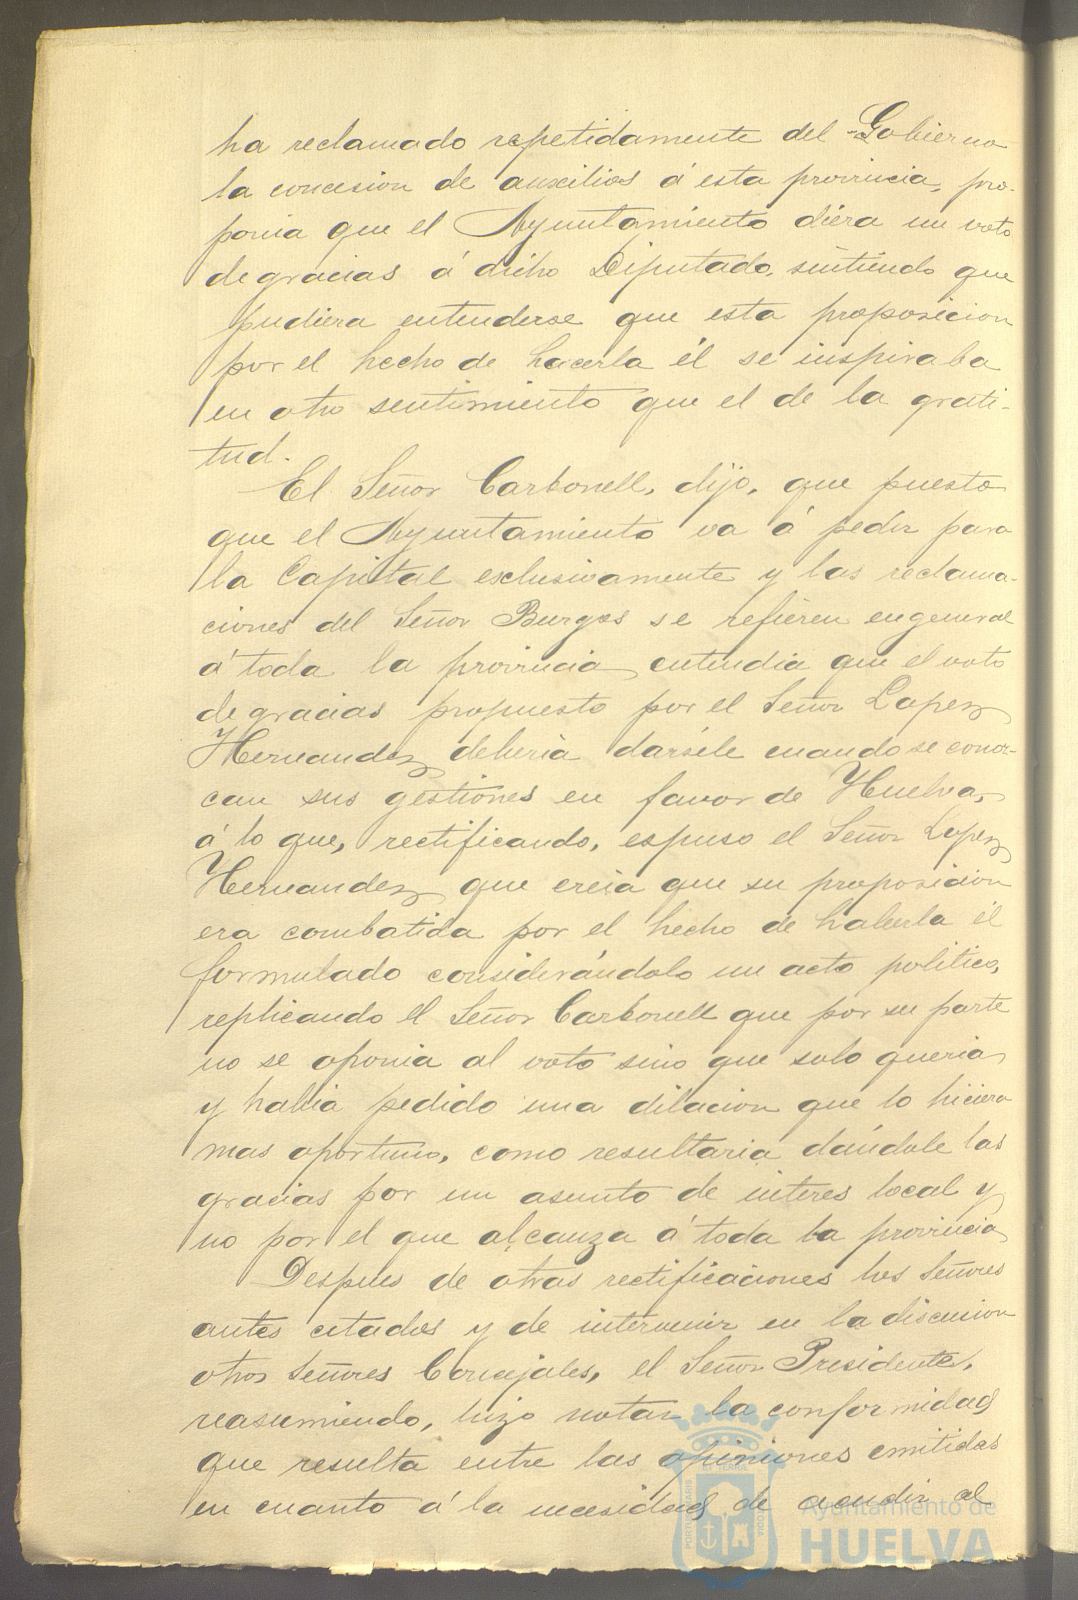 ha reclamado repetidamente del Gobierno
la concesion de auxilios á esta provincia, pro-
ponia que el Ayuntamiento diera un voto
de gracias á dicho Diputado, sintiendo que
pudiera entenderse que esta proposicion
por el hecho de hacerla él se inspiraba
en otro sentimiento que el de la grati-
tud.
El Señor Carbonell, dijo, que puesto
que el Ayuntamiento va á pedir para
la Capital esclusivamente y las reclama-
ciones del Señor Burgos se refieren en general
á toda la provincia, entendia que el voto
de gracias propuesto por el Señor Lopez
Hernandez deberia dársele cuando se conoz-
can sus gestiones en favor de Huelva,
á lo que, rectificando, espuso el Señor Lopez
Hernandez que creia que su proposicion
era combatida por el hecho de haberla él
formulado considerándolo un acto politico,
replicando el Señor Carbonell que por su parte
no se oponia al voto sino que solo queria
y habia pedido una dilacion que lo hiciera
mas oportuno, como resultaria dándole las
gracias por un asunto de interes local y
no por el que alcanza á toda la provincia
Despues de otras rectificaciones los Señores
antes citados y de intervenir en la discusion
otros Señores Concejales, el Señor Presidente,
reasumiendo, hizo notar la conformidad
que resulta entre las opiniones emitidas
en cuanto á la necesidad de acudir al
Ayuntamiento de
HUELVA